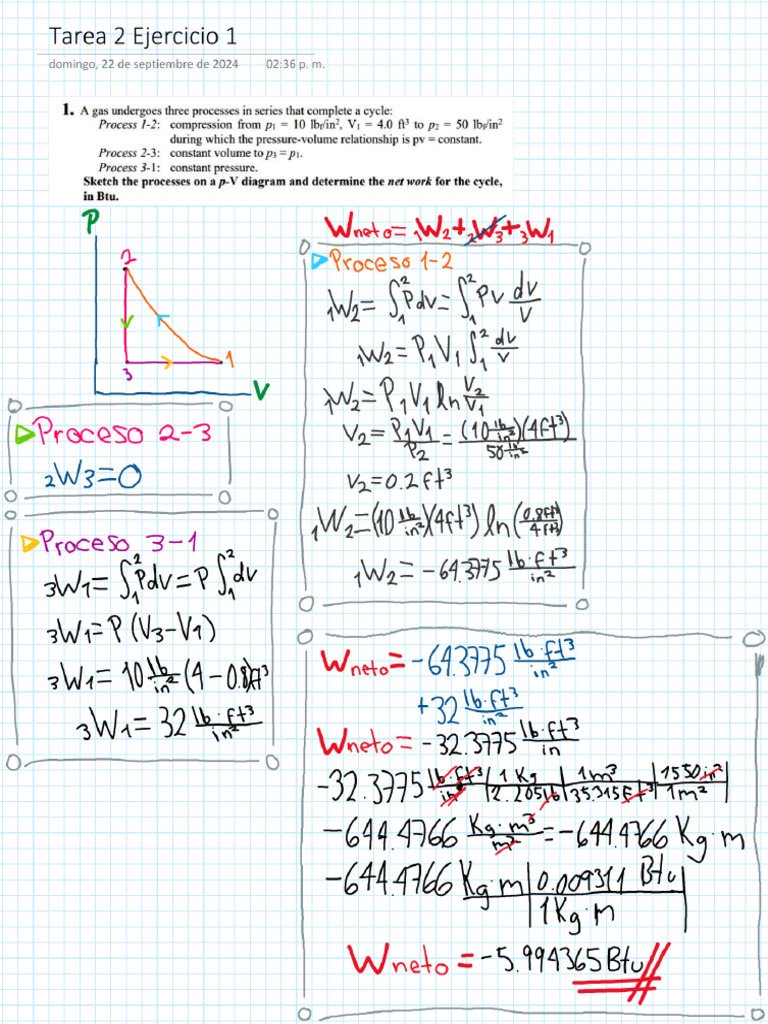 Tarea 2 Ejercicio 1
domingo, 22 de septiembre de 2024 02:36 p. m.
1. A gas undergoes three processes in series that complete a cycle:
Process 1-2: compression from p₁ = 10 lbf/in², V₁ = 4.0 ft³ to p₂ = 50 lbf/in²
during which the pressure-volume relationship is pv = constant.
Process 2-3: constant volume to p₃ = p₁.
Process 3-1: constant pressure.
Sketch the processes on a p-V diagram and determine the net work for the cycle,
in Btu.
P
2
1
3
V
Wneto = ₁W₂ + ₂W₃ + ₃W₁
Proceso 1-2
₁W₂ = ∫₁² Pdv = ∫₁² Pv dv/v
₁W₂ = P₁V₁ ∫₁² dv/v
₁W₂ = P₁V₁ ln V₂/V₁
V₂ = P₁V₁/P₂ = (10 lb/in²)(4ft³)/50 lb/in²
V₂ = 0.2 ft³
₁W₂ = (10 lb/in²)(4ft³) ln (0.8ft³/4ft³)
₁W₂ = -64.3775 lb·ft³/in²
Proceso 2-3
₂W₃ = 0
Proceso 3-1
₃W₁ = ∫₁² Pdv = P ∫₁² dv
₃W₁ = P (V₃ - V₁)
₃W₁ = 10 lb/in² (4 - 0.8)ft³
₃W₁ = 32 lb·ft³/in²
Wneto = -64.3775 lb·ft³/in²
+32 lb·ft³/in²
Wneto = -32.3775 lb·ft³/in
-32.3775 lb·ft³/in² | 1 Kg/2.205 lb | 1m³/35.315 ft³ | 1550 in²/1m²
-644.4766 Kg·m³/m² = -644.4766 Kg·m
-644.4766 Kg·m | 0.009311 Btu/1Kg·m
Wneto = -5.994365 Btu